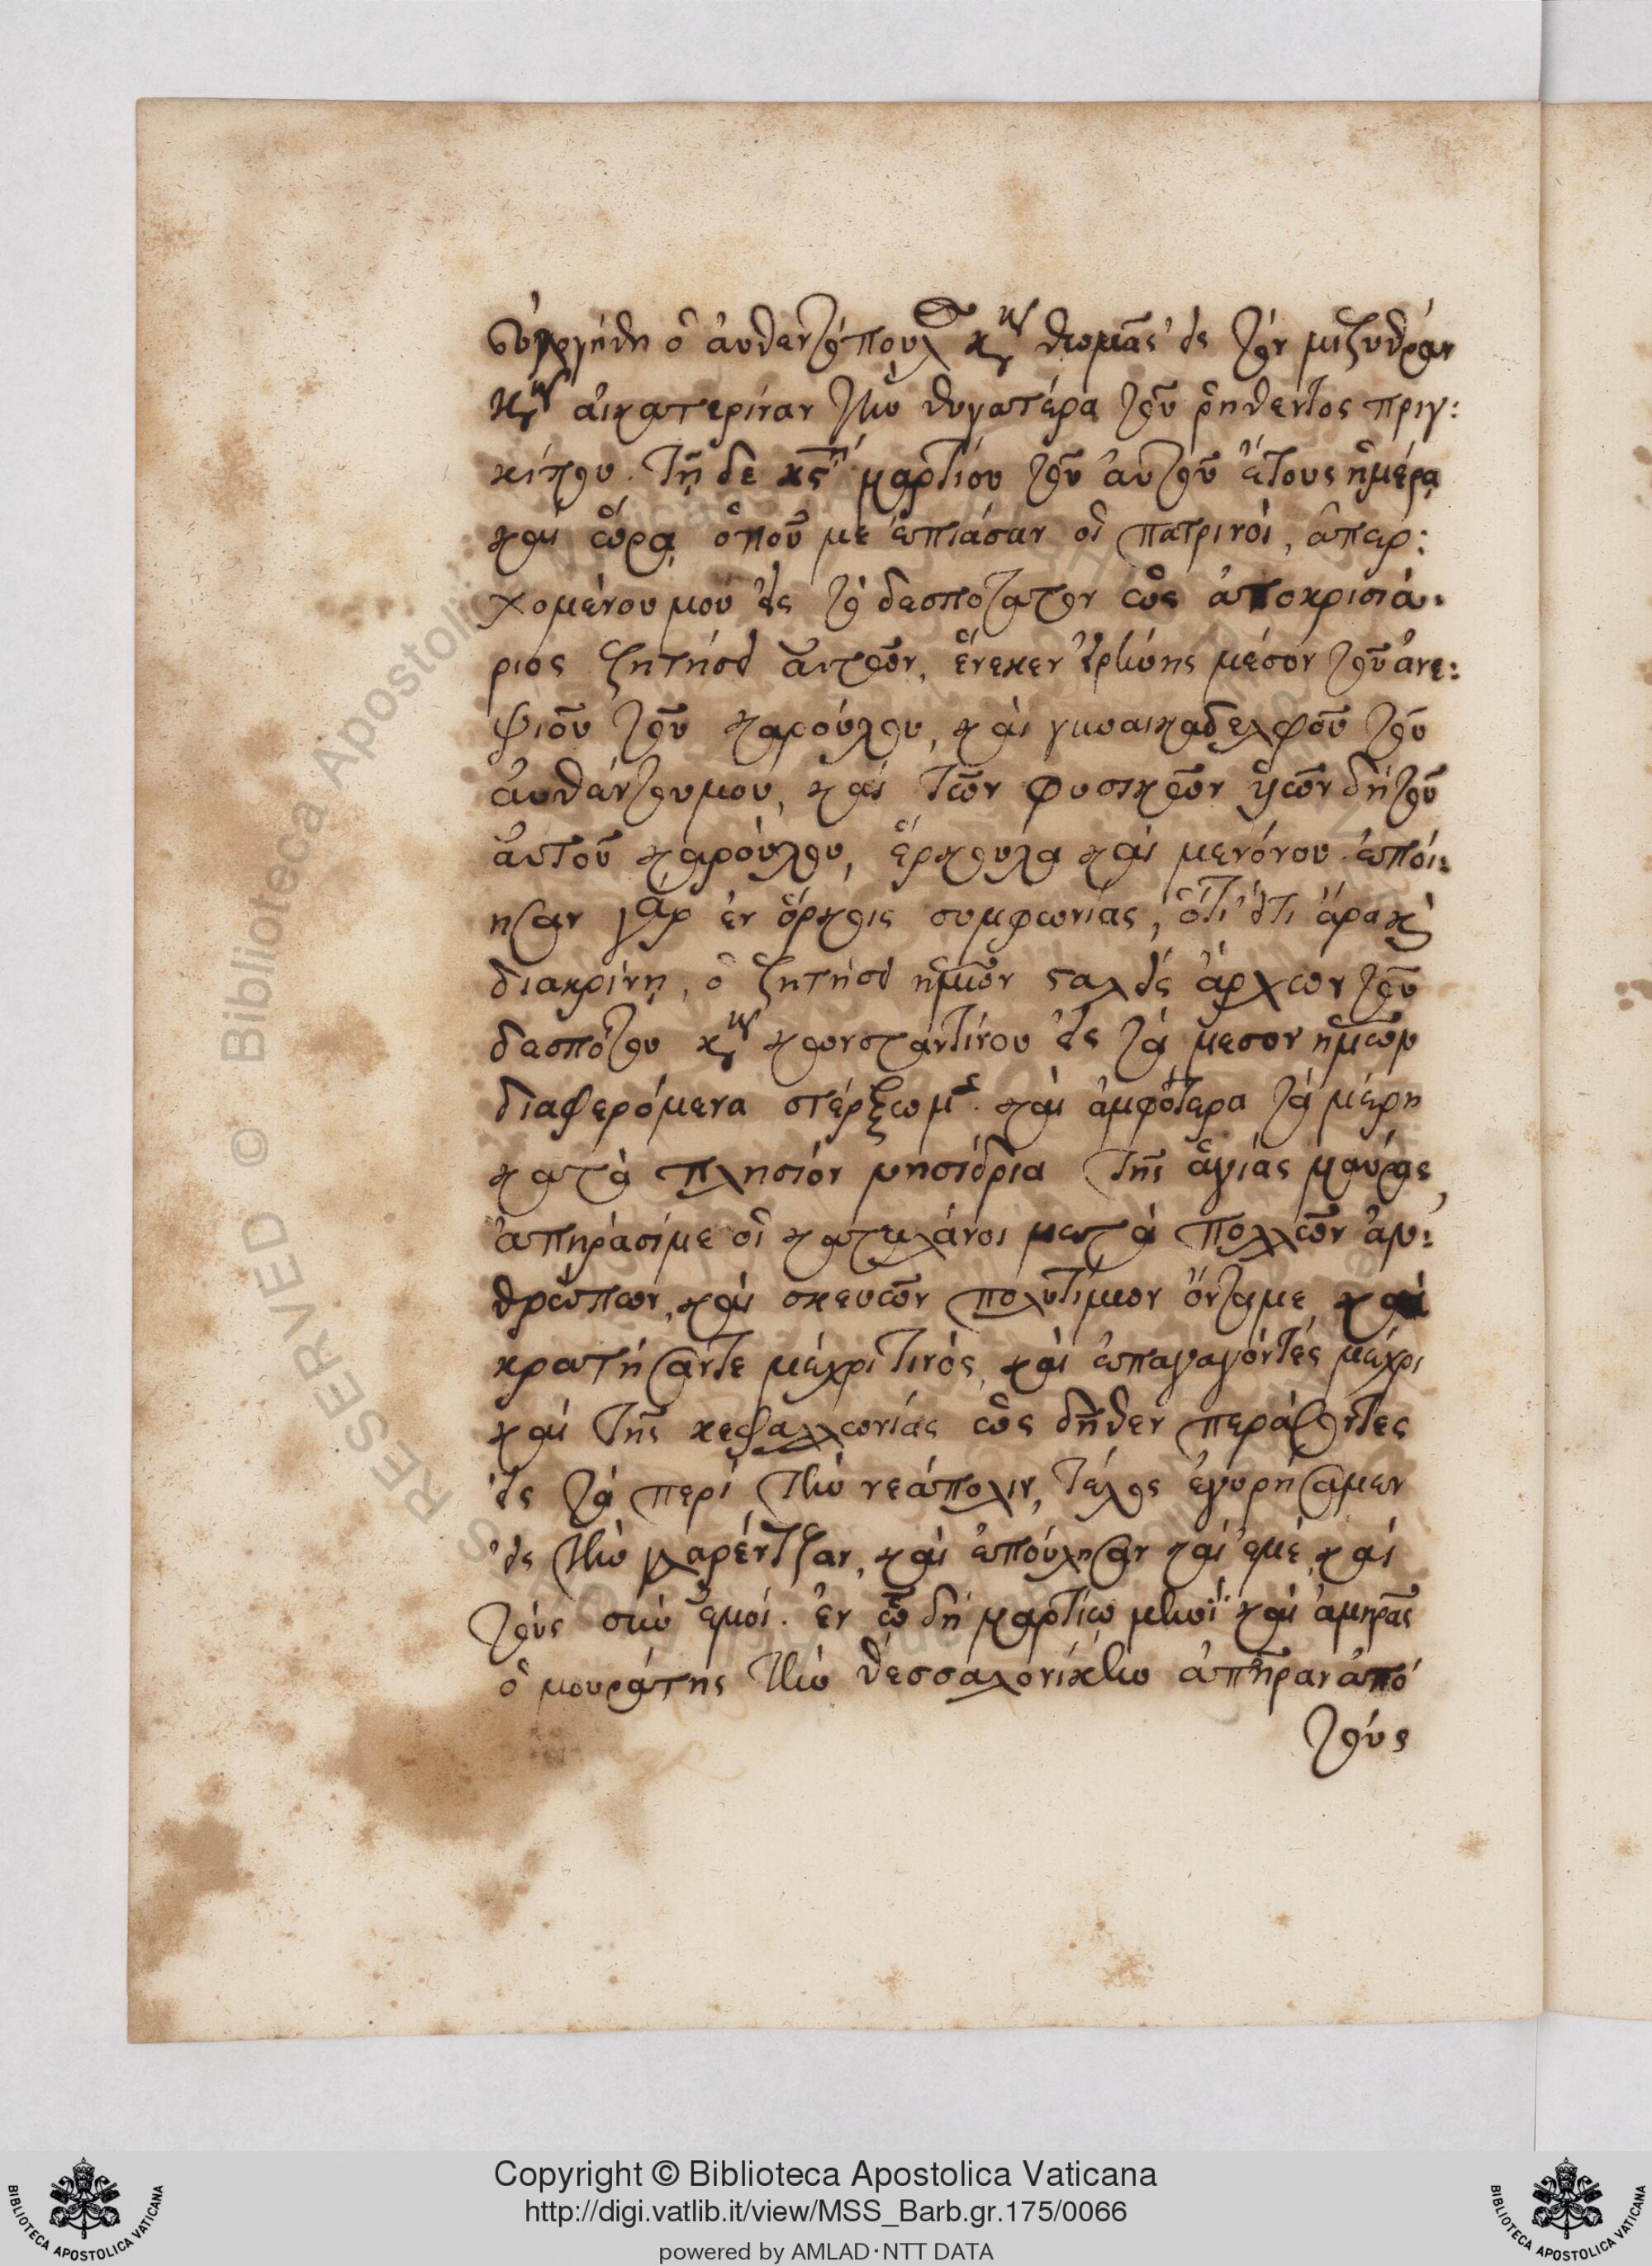 εὐλογήθη ὁ αὐθεντόπουλος κὺρ θωμᾶς εἰς τὸν μιζυθρᾶν
κυρ αἰκατερίναν τὴν θυγατέρα τοῦ ῥηθέντος πριγ:
κίπου. τῇ δε κς῍ μαρτίου τοῦ αὐτοῦ ἔτους ἡμέρᾳ
καὶ ὥρᾳ ὁποῦ με ἐπιάσαν οἱ πατρινοὶ, ἀπερ:
χομένου μου εἰς τὸ δεσποτάτον ὡς ἀποκρισιά:
ριος ζητήσει αὐτῶν, ἕνεκεν εἰρήνης μέσον τοῦ ἀνε:
ψιοῦ τοῦ καρούλου, καὶ γυναικαδελφοῦ τοῦ
αὐθέντου μου, καὶ τῶν φυσικῶν υἱῶν δὴ τοῦ
αὐτοῦ καρούλου, ἕρκουλα καὶ μενόνου. ἐποί:
ησαν γὰρ ἐν ὅρκοις συμφωνίας, ὅτι εἴτι ἄρα καὶ
διακρίνῃ, ὁ ζητήσει ἡμῶν σταλεὶς ἄρχων τοῦ
δεσπότου κὺρ κωνσταντίνου εἰς τὰ μεσον ἡμῶν
διαφερόμενα στέρξωμεν καὶ ἀμφότερα τὰ μέρη
κατὰ πλησιόν νησίδρια τῆς ἁγίας μαύρας,
ἀπηράσίμε οἱ κατελάνοι μετὰ πολλῶν ἀν:
θρώπων, καὶ σκευῶν πολυτίμων ὄνταμε, καὶ
κρατήσαντε μέχρι τινός, καὶ ἐπαγαγόντες μέχρι
καὶ τῆς κεφαλλωνίας ὡς δῆθεν περάσοντες
εἰς τὰ περὶ τὴν νεάπολιν, τέλος ἐγυρήσαμεν
εἰς τὴν γλαρέντζαν, καὶ ἐπούλησαν καὶ ἐμὲ, καὶ
τοὺς σὺν ἐμοί. ἐν ᾧ δὴ μαρτίῳ μηνὶ καὶ ἀμηρᾶς
ὁ μουράτης τὴν θεσσαλονίκην ἀπῆραν ἀπό
τοὺς
Copyright © Biblioteca Apostolica Vaticana
http://digi.vatlib.it/view/MSS_Barb.gr.175/0066
powered by AMLAD·NTT DATA